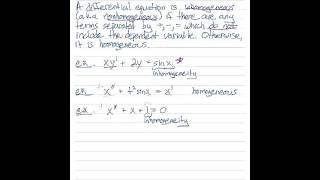 A differential equation is inhomogeneous
(a.k.a. nonhomogeneous) if there are any
terms separated by +,-,= which do not
include the dependent variable. Otherwise,
it is homogeneous.
ex. xy' + 2y = sin x
inhomogeneity
ex. x'' + t² sin x = x' homogeneous
ex. x'' + x + 1 = 0
inhomogeneity